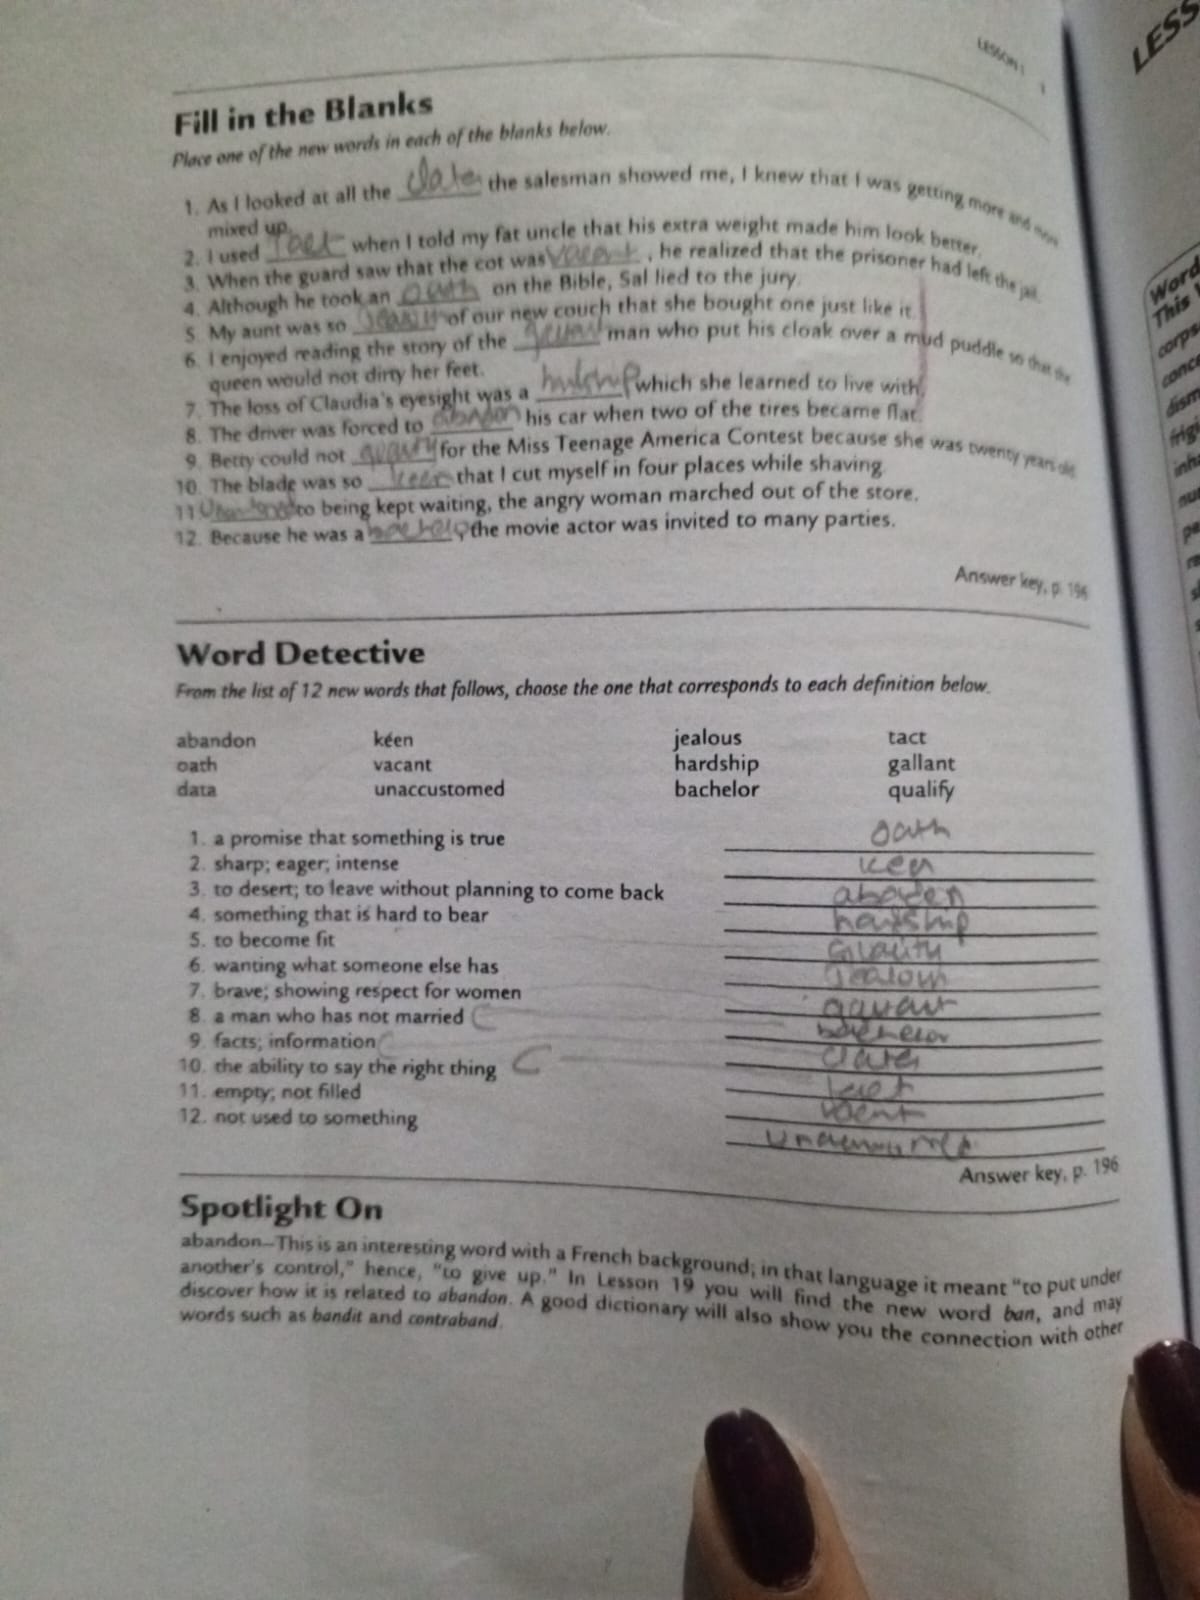 LESSON 1
LESS
Fill in the Blanks
Place one of the new words in each of the blanks below.
1. As I looked at all the data the salesman showed me, I knew that I was getting more and more
mixed up.
2. I used Tact when I told my fat uncle that his extra weight made him look better.
3. When the guard saw that the cot was vacant, he realized that the prisoner had left the jail.
4. Although he took an oath on the Bible, Sal lied to the jury.
5. My aunt was so of our new couch that she bought one just like it.
6. I enjoyed reading the story of the man who put his cloak over a mud puddle so that the
queen would not dirty her feet.
7. The loss of Claudia's eyesight was a which she learned to live with.
8. The driver was forced to abandon his car when two of the tires became flat.
9. Betty could not for the Miss Teenage America Contest because she was twenty years old.
10. The blade was so keen that I cut myself in four places while shaving.
11. to being kept waiting, the angry woman marched out of the store.
12. Because he was a , the movie actor was invited to many parties.
Answer key, p. 196
Word Detective
From the list of 12 new words that follows, choose the one that corresponds to each definition below.
abandon keen jealous tact
oath vacant hardship gallant
data unaccustomed bachelor qualify
1. a promise that something is true oath
2. sharp; eager; intense keen
3. to desert; to leave without planning to come back
4. something that is hard to bear
5. to become fit
6. wanting what someone else has
7. brave; showing respect for women
8. a man who has not married
9. facts; information
10. the ability to say the right thing
11. empty; not filled
12. not used to something
Answer key, p. 196
Spotlight On
abandon—This is an interesting word with a French background; in that language it meant "to put under
another's control," hence, "to give up." In Lesson 19 you will find the new word ban, and may
discover how it is related to abandon. A good dictionary will also show you the connection with other
words such as bandit and contraband.
Word
This
corps
conce
dism
frigi